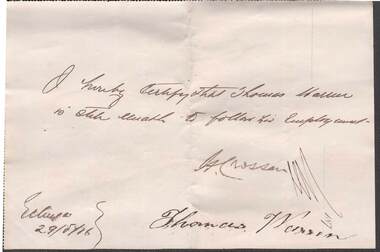 I hereby Certify that Thomas Warren
is still unable to follow his Employment.
H Crossen MD
Echuca
29/8/16
Thomas Warren